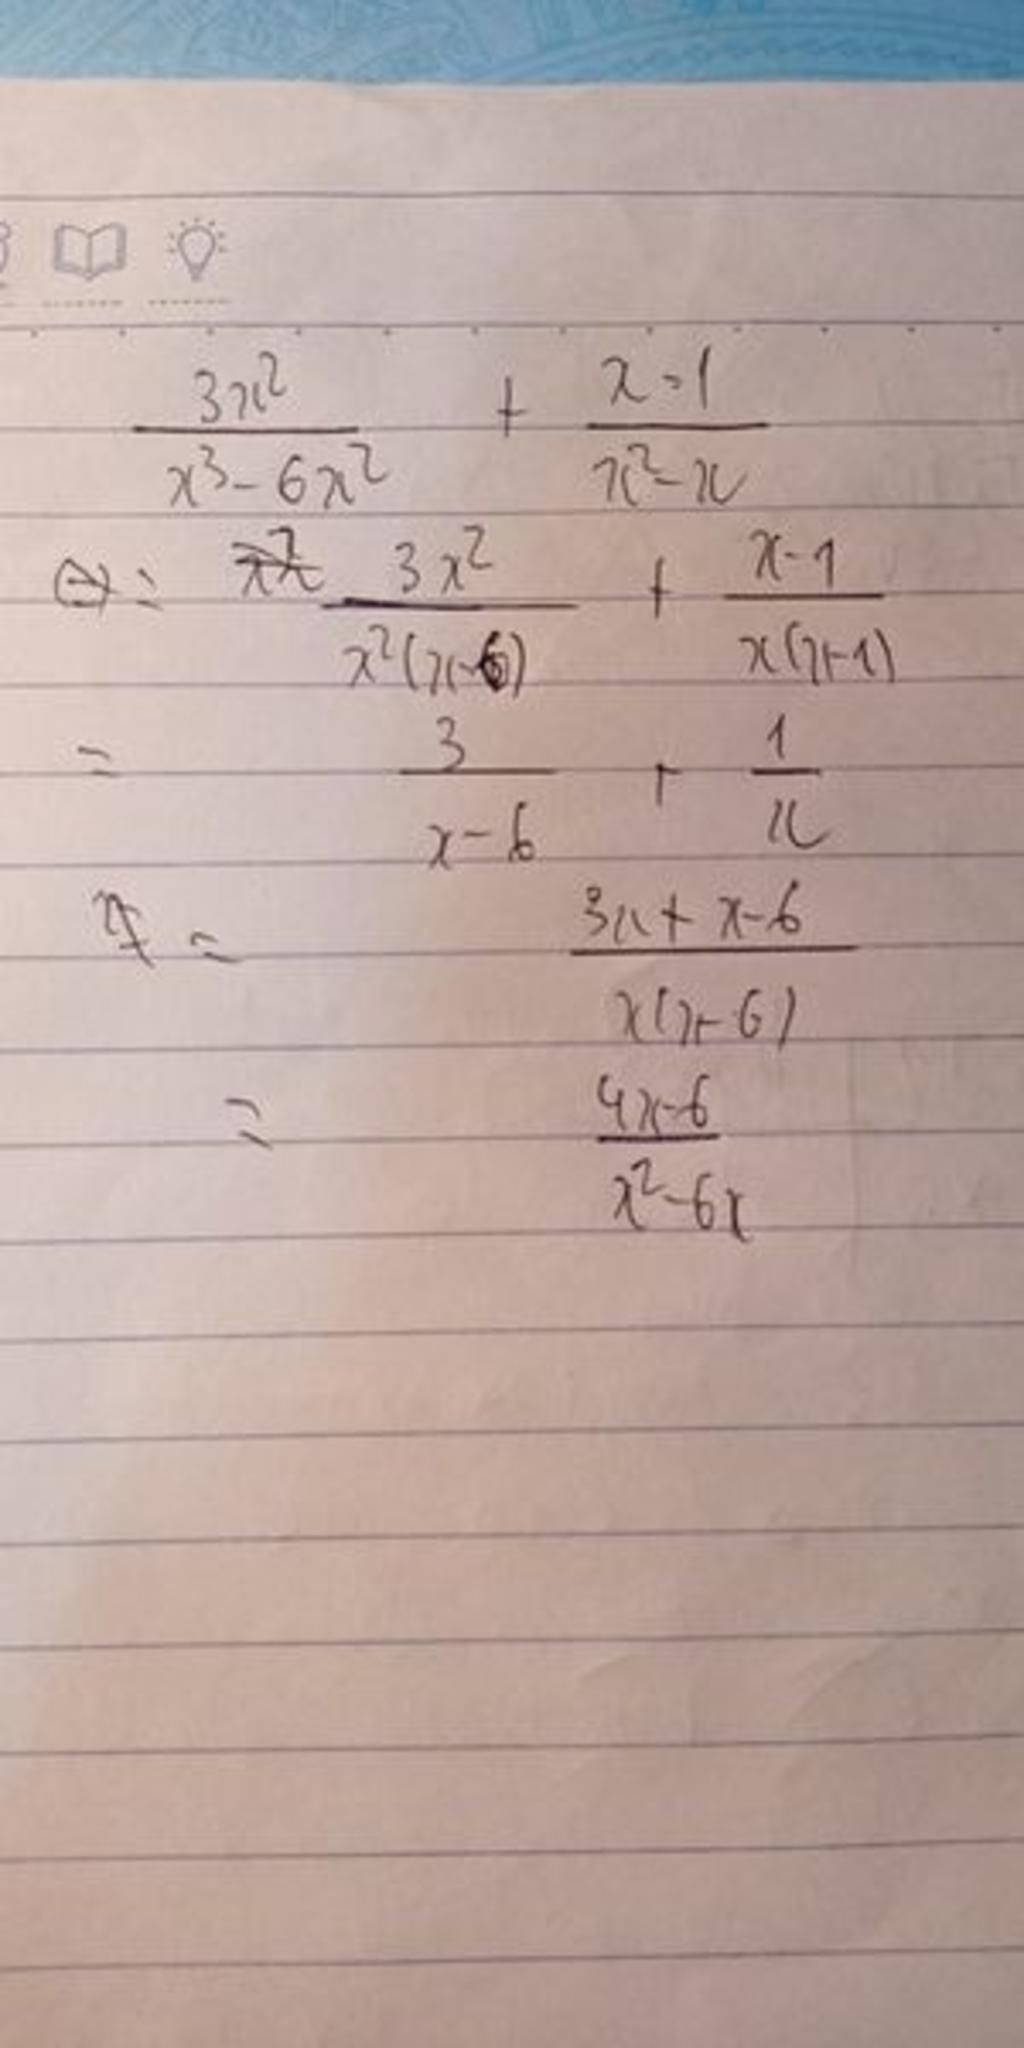 3x²/(x³ - 6x²) + (x - 1)/(x² - x)
= 3x²/(x²(x-6)) + (x-1)/(x(x-1))
= 3/(x-6) + 1/x
= (3x + x-6)/(x(x-6))
= (4x-6)/(x²-6x)